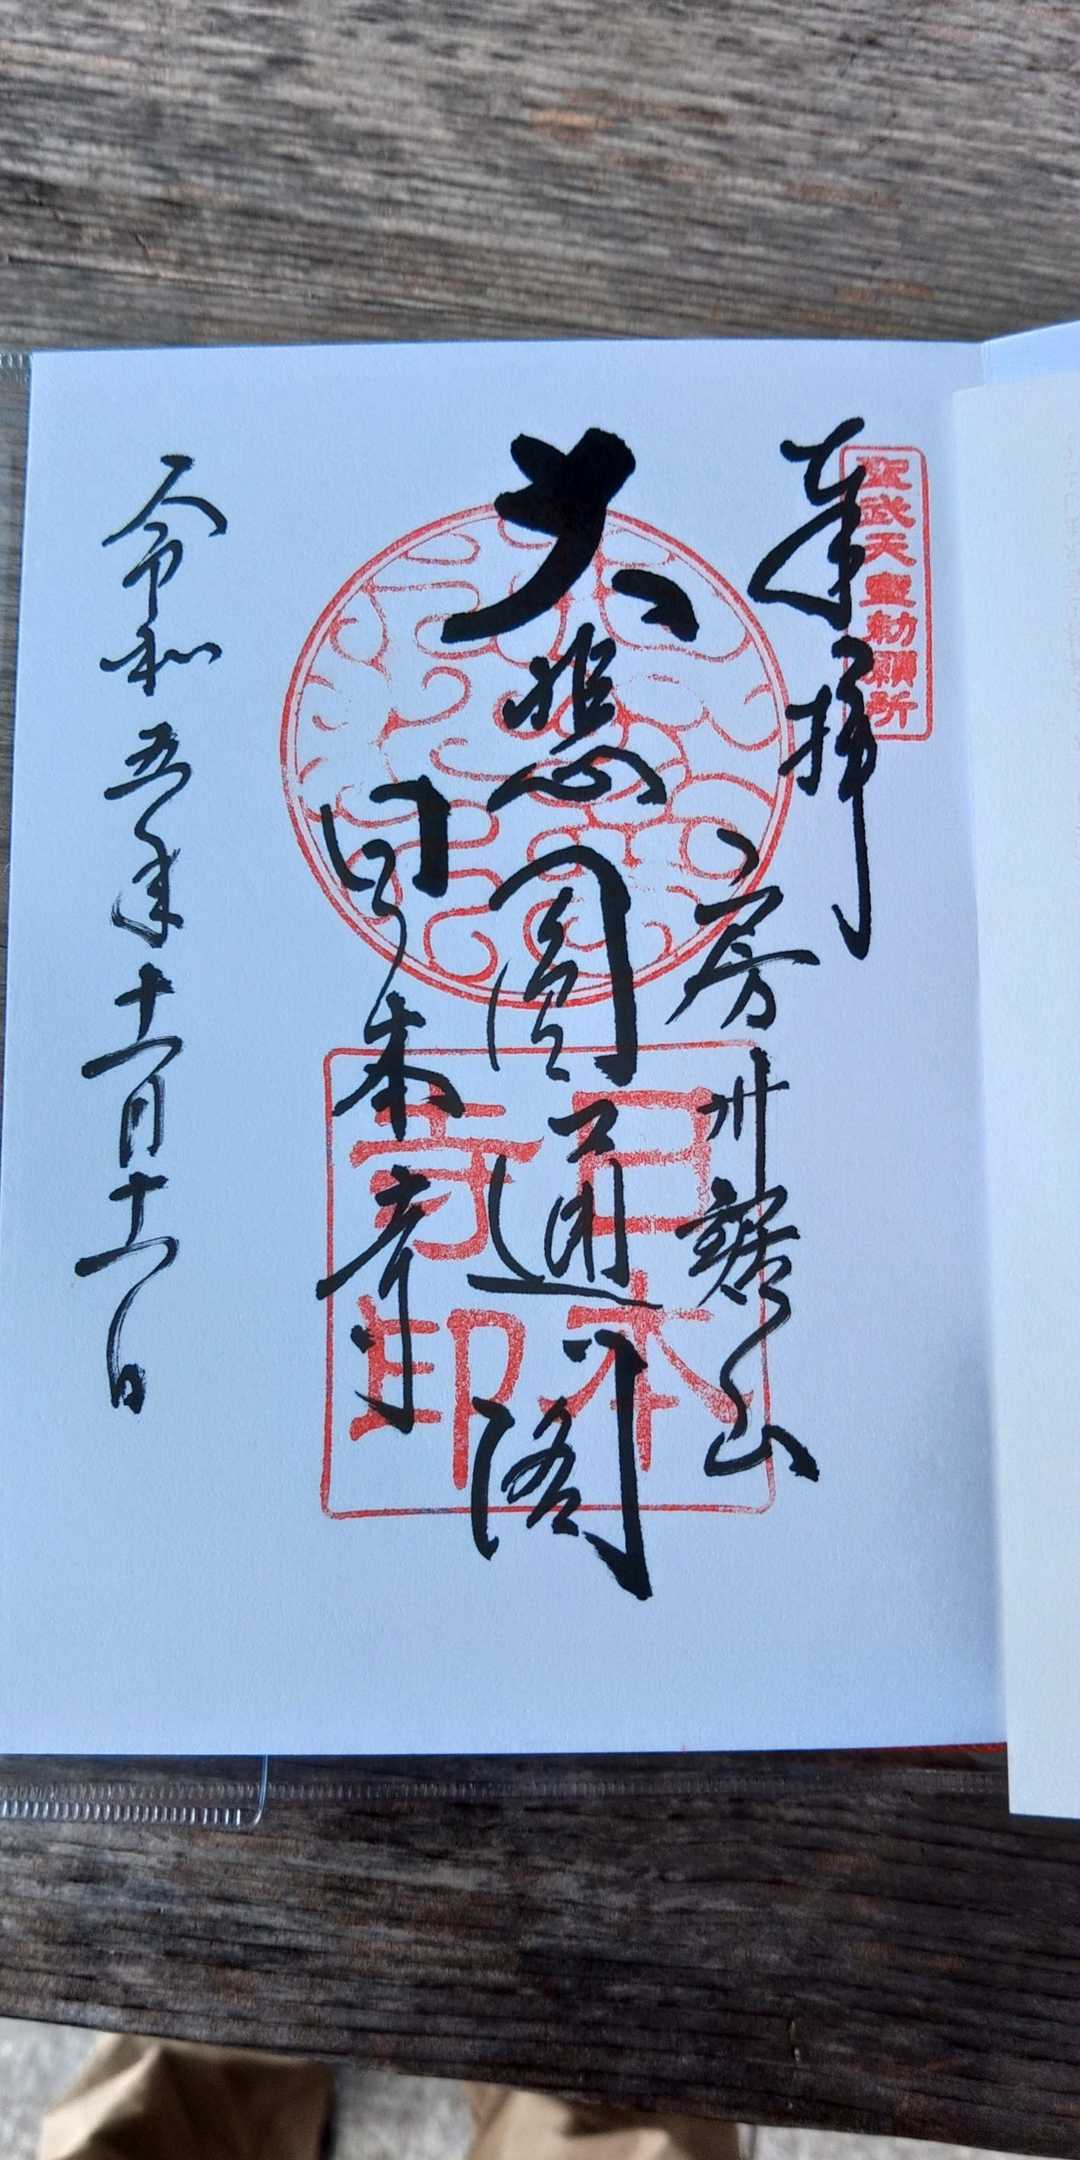 聖武天皇勅願所
奉拝
房州鋸山
大悲圓通閣
日本寺
日本
寺印
令和五年十一月十一日